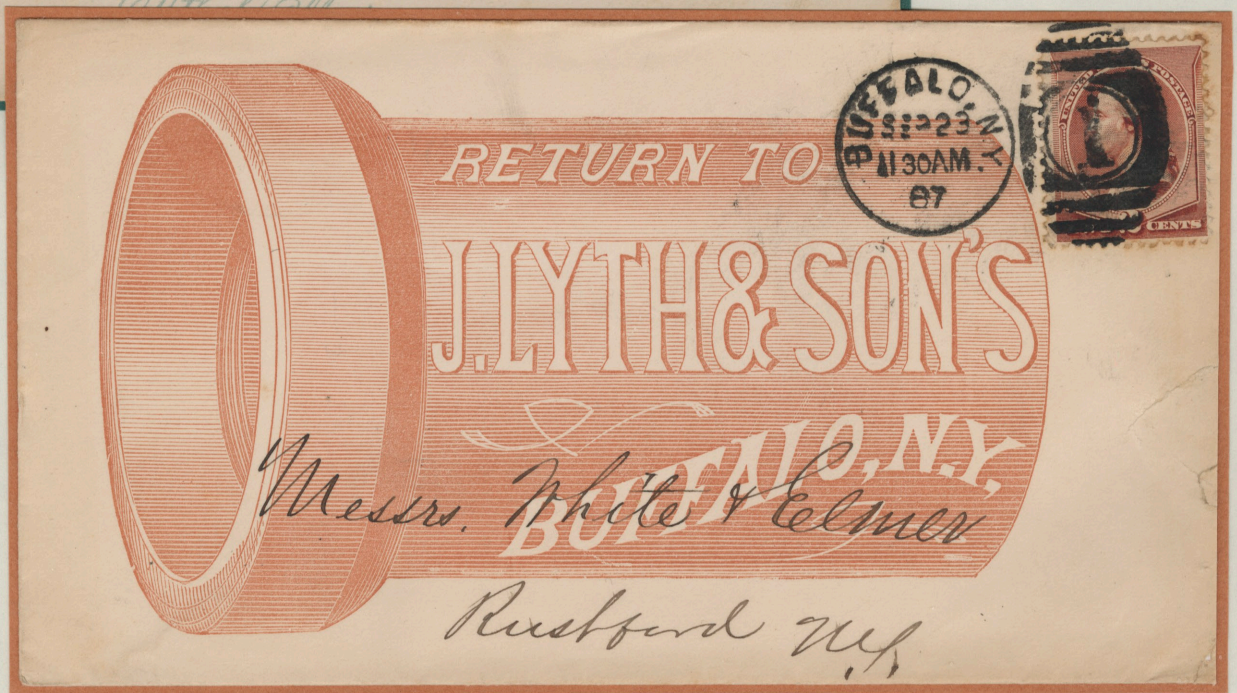 RETURN TO
J. LYTH & SON'S
BUFFALO, N.Y.
BUFFALO, N.Y.
SEP 23
11 30 AM.
87
UNITED POSTAGE
CENTS
Messrs. White & Elmer
Rushford N.Y.